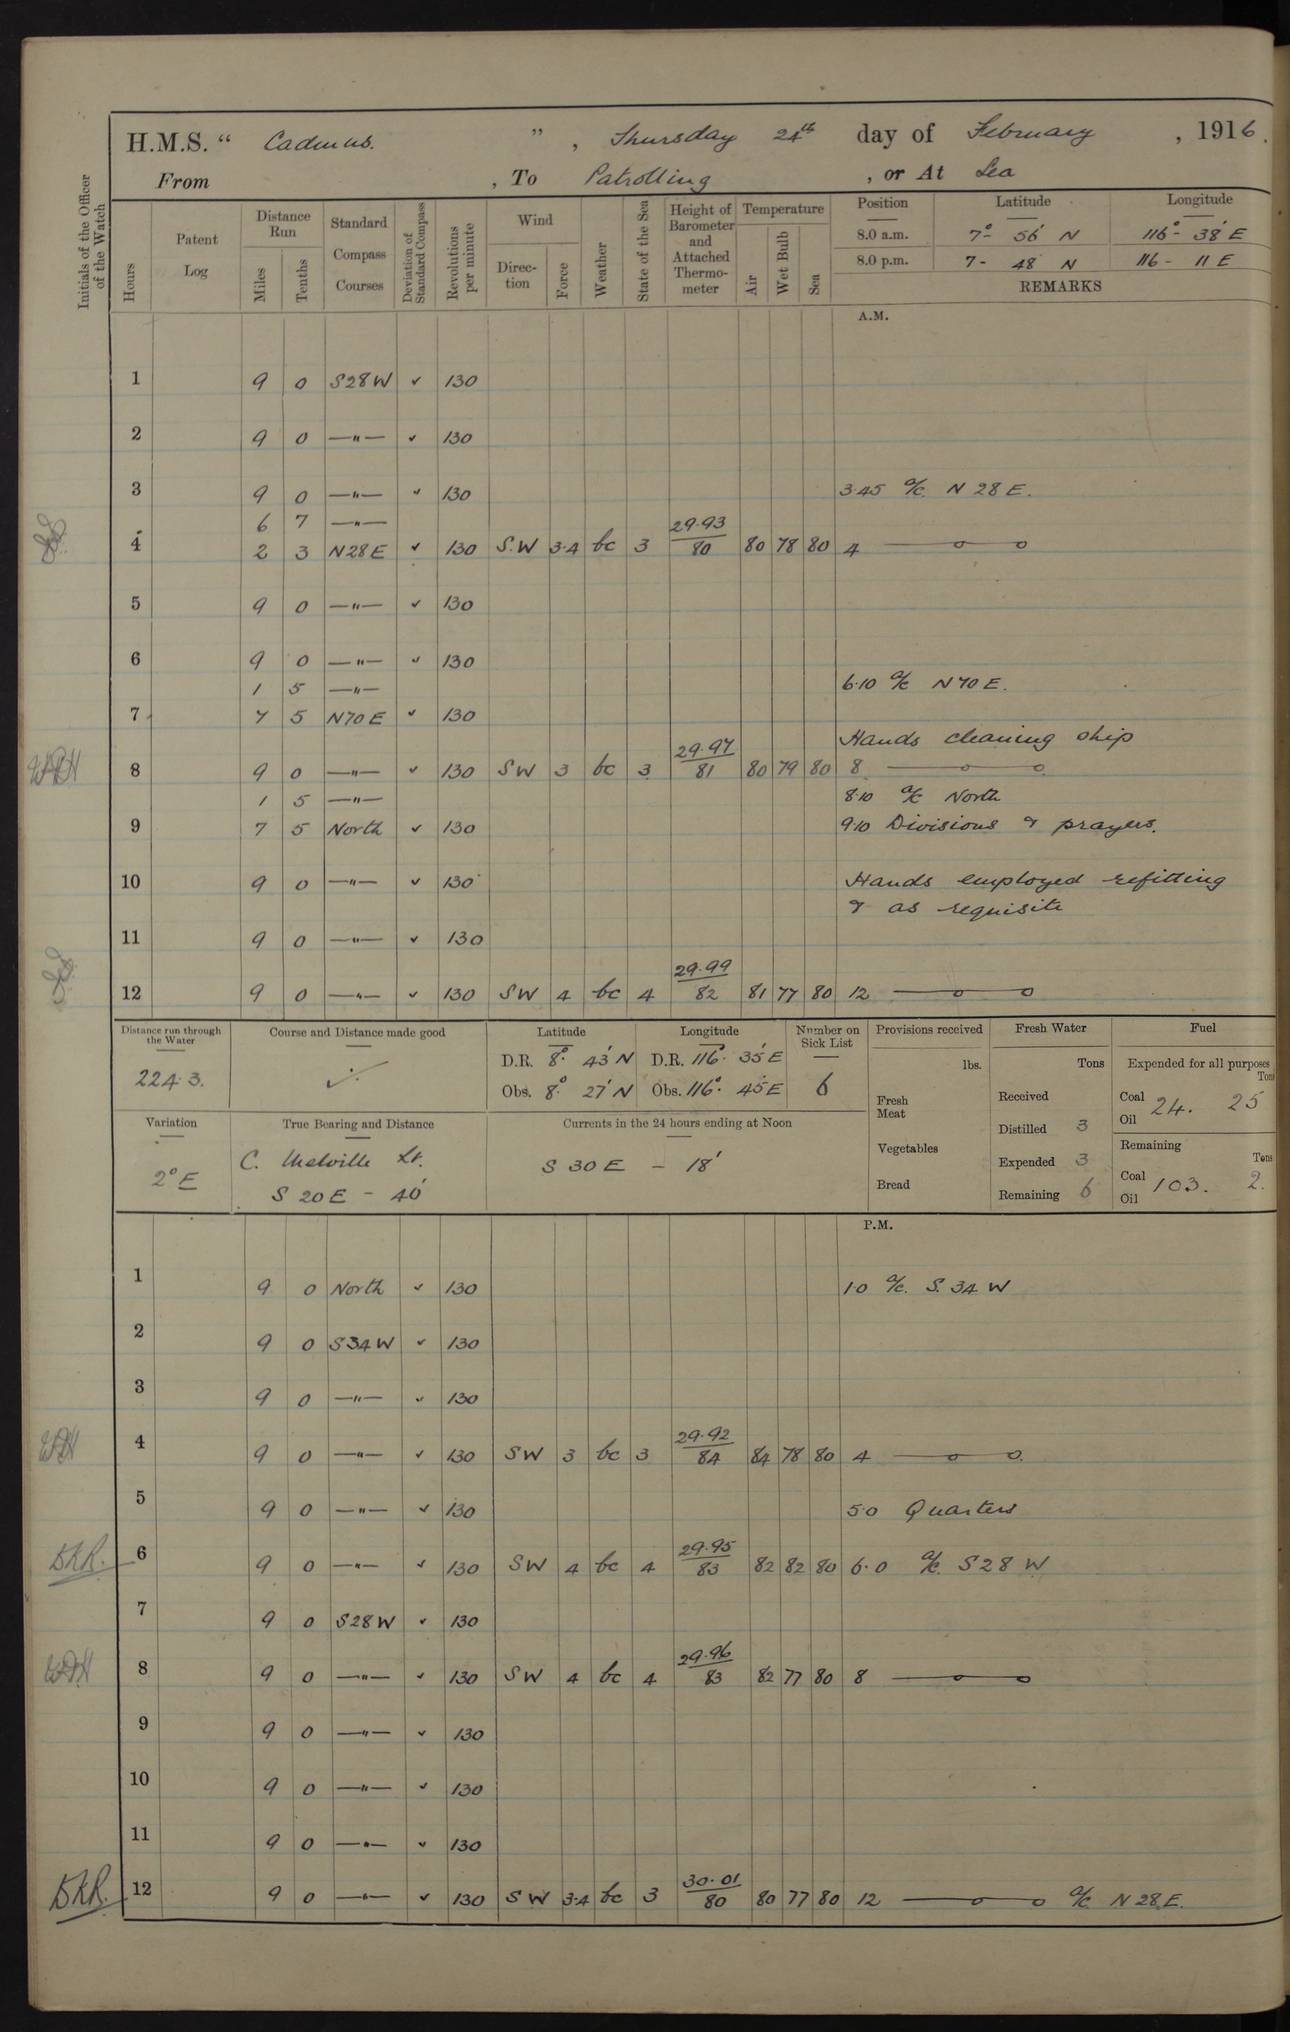 H.M.S. “ Cadmus. ” , Thursday 24th day of February , 1916.
From , To Patrolling , or At Sea
Initials of the Officer of the Watch
Hours
Patent Log
Distance Run
Miles Tenths
Standard Compass Courses
Deviation of Standard Compass
Revolutions per minute
Wind
Direction Force
Weather
State of the Sea
Height of Barometer and Attached Thermometer
Temperature
Air Wet Bulb Sea
Position Latitude Longitude
8.0 a.m. 7° 56' N 116° 38' E
8.0 p.m. 7 - 48 N 116 - 11 E
REMARKS
A.M.
1 9 0 S28W ✓ 130
2 9 0 —"— ✓ 130
3 9 0 —"— ✓ 130 3.45 a/c. N 28 E.
6 7 —"— 29.93
4 2 3 N28E ✓ 130 S.W 3.4 bc 3 80 80 78 80 4 —o—o
5 9 0 —"— ✓ 130
6 9 0 —"— ✓ 130
1 5 —"— 6.10 a/c N70E.
7 7 5 N70E ✓ 130
Hands cleaning ship
29.97
8 9 0 —"— ✓ 130 SW 3 bc 3 81 80 79 80 8 —o—o
1 5 —"— 8.10 a/c North
9 7 5 North ✓ 130 9.10 Divisions & prayers.
10 9 0 —"— ✓ 130 Hands employed refitting
& as requisite
11 9 0 —"— ✓ 130
29.99
12 9 0 —"— ✓ 130 SW 4 bc 4 82 81 77 80 12 —o—o
Distance run through the Water
224.3.
Course and Distance made good
✓.
Latitude Longitude
D.R. 8° 43' N D.R. 116° 35' E
Obs. 8° 27' N Obs. 116° 45' E
Number on Sick List
6
Provisions received
lbs.
Fresh Meat
Vegetables
Bread
Fresh Water
Tons
Received
Distilled 3
Expended 3
Remaining 6
Fuel
Expended for all purposes
Tons
Coal 24. 25
Oil
Remaining
Tons
Coal 103. 2.
Oil
Variation
2° E
True Bearing and Distance
C. Melville Lt.
S 20 E - 40'
Currents in the 24 hours ending at Noon
S 30 E - 18'
P.M.
1 9 0 North ✓ 130 1.0 a/c. S. 34 W
2 9 0 S34W ✓ 130
3 9 0 —"— ✓ 130
29.92
4 9 0 —"— ✓ 130 SW 3 bc 3 84 84 78 80 4 —o—o.
5 9 0 —"— ✓ 130 5.0 Quarters
29.95
BKR. 6 9 0 —"— ✓ 130 SW 4 bc 4 83 82 82 80 6.0 a/c. S28 W
7 9 0 S28W ✓ 130
29.96
8 9 0 —"— ✓ 130 SW 4 bc 4 83 82 77 80 8 —o—o
9 9 0 —"— ✓ 130
10 9 0 —"— ✓ 130
11 9 0 —"— ✓ 130
30.01
BKR. 12 9 0 —"— ✓ 130 SW 3.4 bc 3 80 80 77 80 12 —o—o a/c. N 28 E.